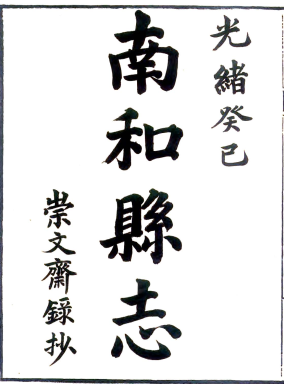 光緒癸巳
南和縣志
崇文齋錄抄